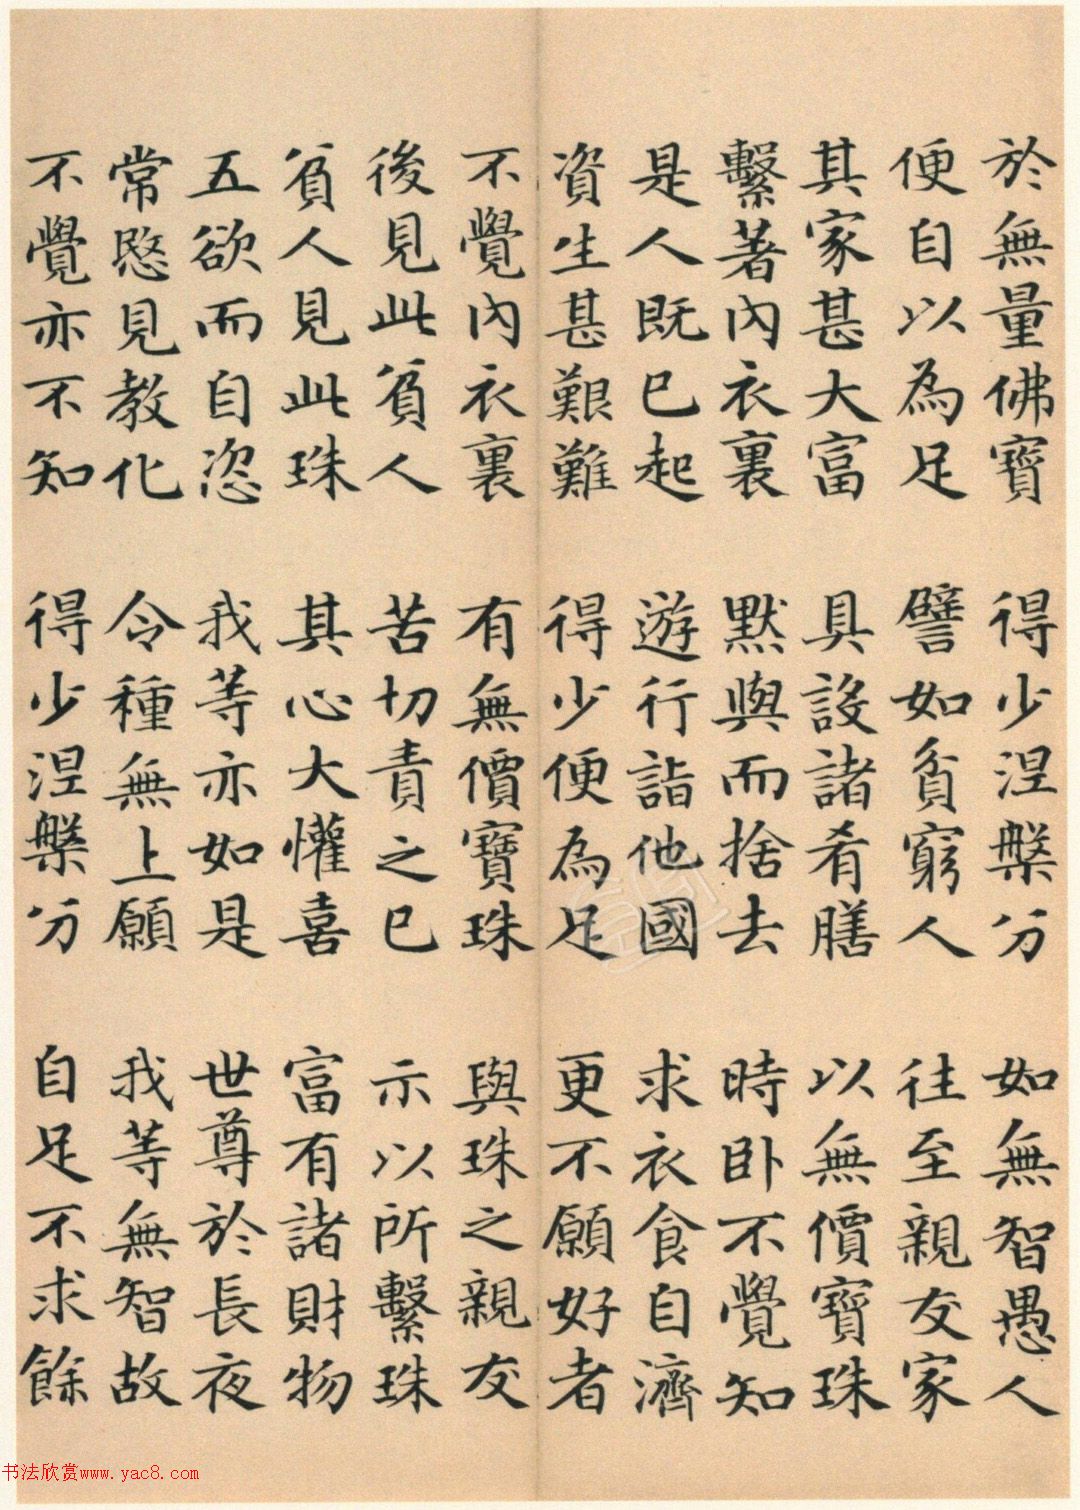 於無量佛寶 得少涅槃分 如無智愚人
便自以為足 譬如貧窮人 往至親友家
其家甚大富 具設諸肴膳 以無價寶珠
繫著內衣裏 默與而捨去 時臥不覺知
是人既已起 遊行詣他國 求衣食自濟
資生甚艱難 得少便為足 更不願好者
不覺內衣裏 有無價寶珠 與珠之親友
後見此貧人 苦切責之已 示以所繫珠
貧人見此珠 其心大懽喜 富有諸財物
五欲而自恣 我等亦如是 世尊於長夜
常愍見教化 令種無上願 我等無智故
不覺亦不知 得少涅槃分 自足不求餘
书法欣赏www.yac8.com